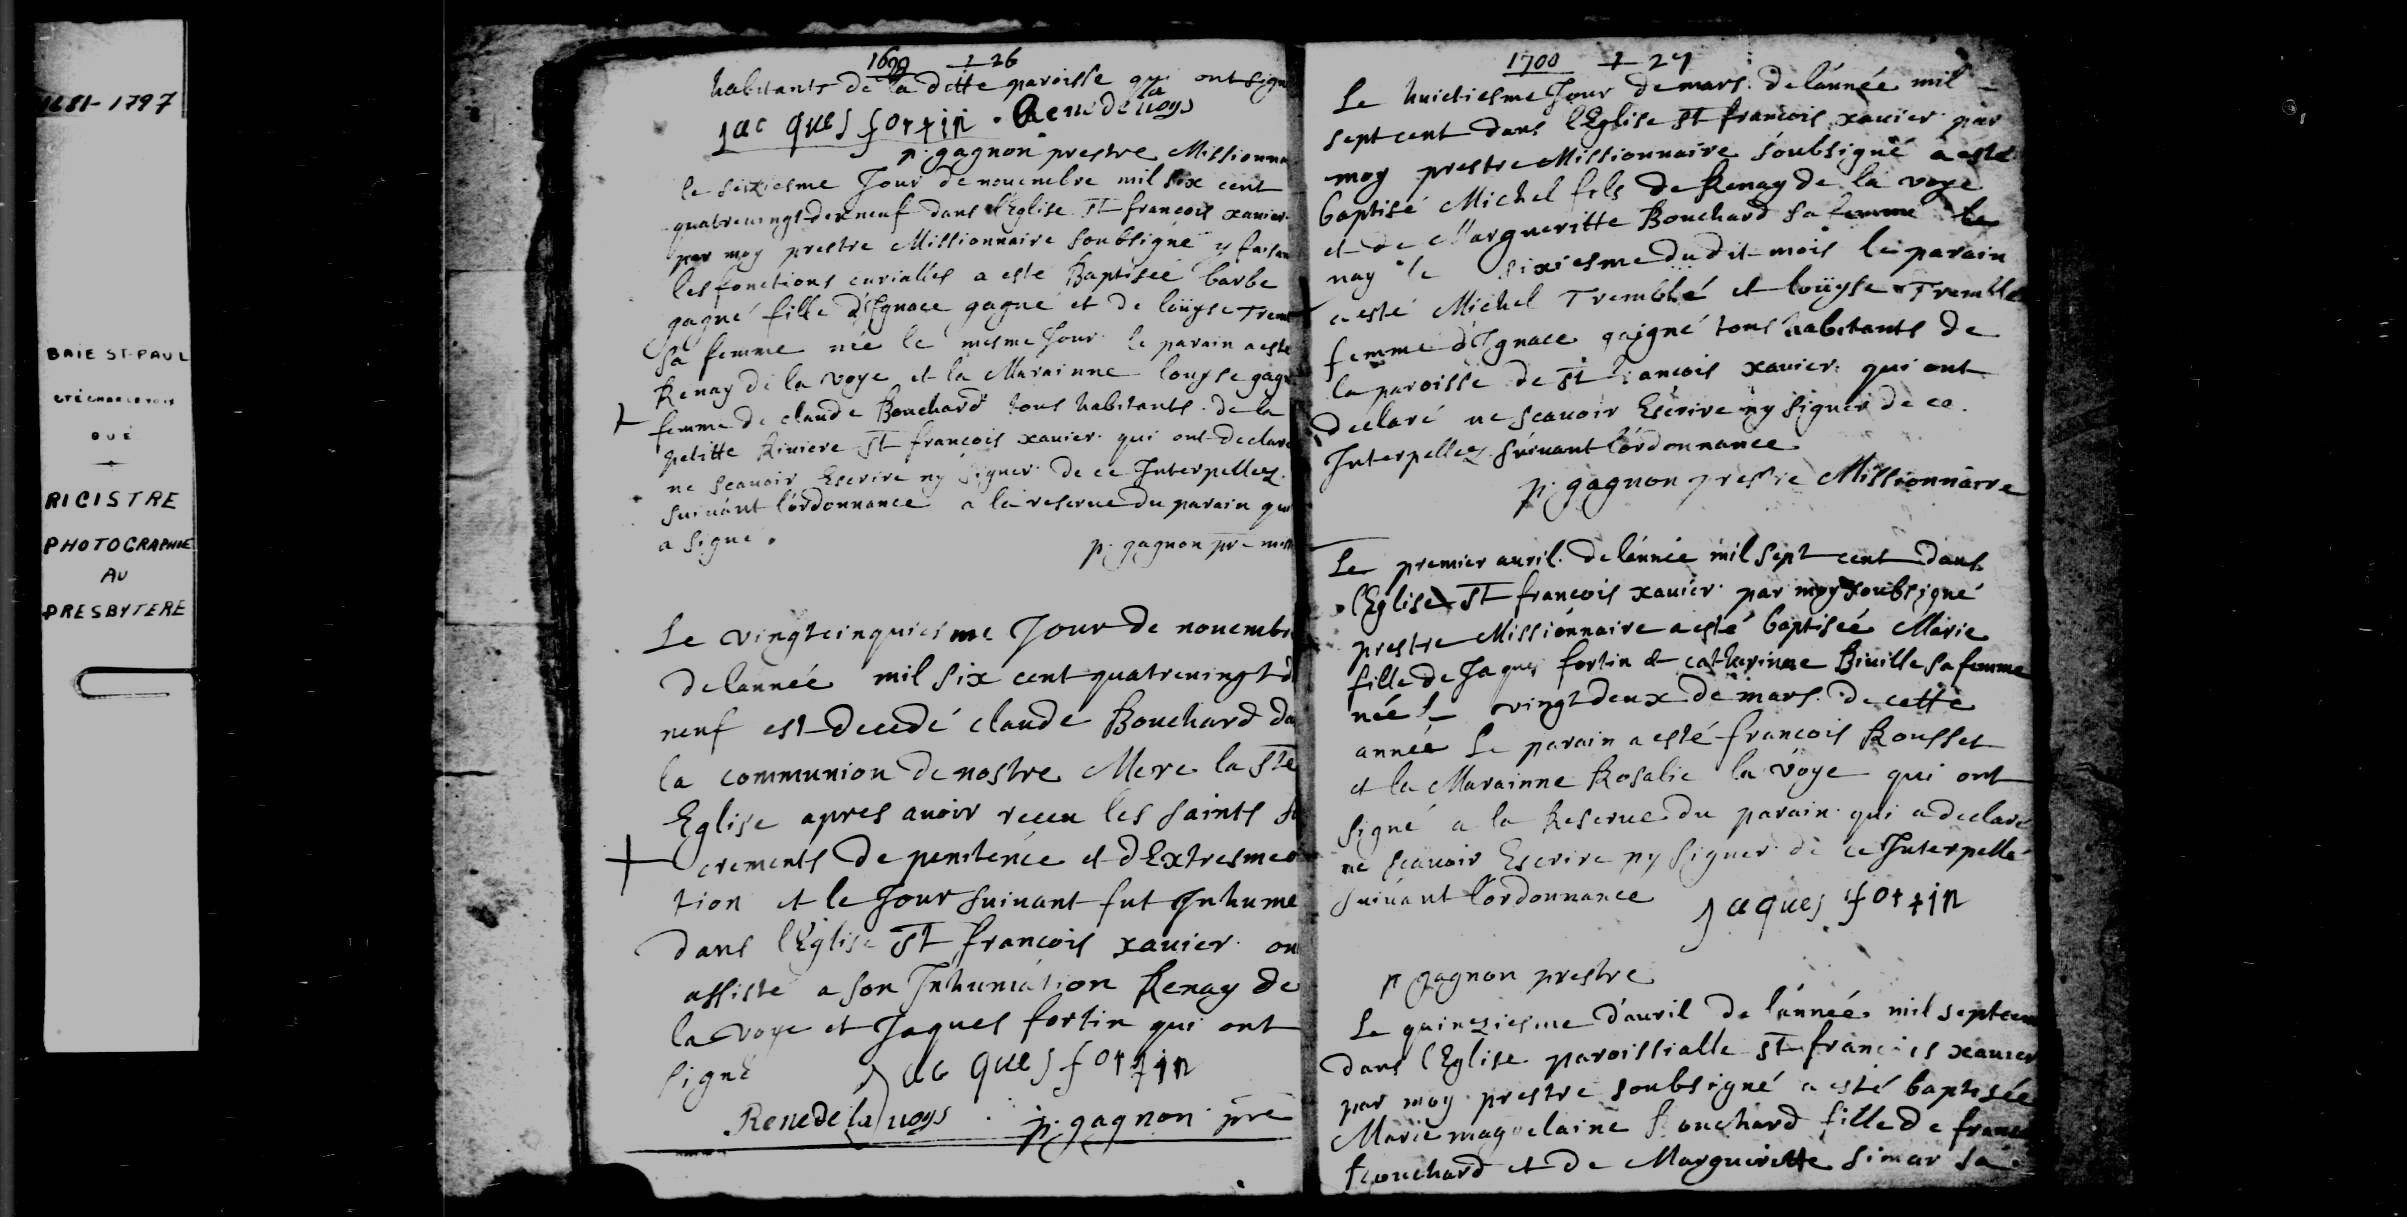 1681-1797
BAIE ST-PAUL
CTÉ CHARLEVOIX
QUÉ
RICISTRE
PHOTOGRAPHIÉ
AU
PRESBYTERE
1699 26
habitants de la ditte paroisse qui ont signe
Jacques fortin . Rene de la uoys
p. gagnon prestre Missionna
le seiziesme Jour de nouembre mil six cent
quatreuingt dix neuf dans l'Eglise St francois xauier
par moy prestre Missionnaire soubsigné y faisan
les fonctions curialles a esté Baptiseé barbe
gagné fille d'Ignace gagné et de loüyse Trem
sa femme neé le mesme Jour le parain a esté
Renay de la voye et la Marainne louyse gagn
femme de claude Bouchard tous habitants de la
petitte Riuiere St francois xauier qui ont declaré
ne scauoir Escrire ny signer de ce Interpellez
suiuant l'ordonnance a la reserue du parain qui
a signé .
p. gagnon pre miss
Le vingtcinquiesme Jour de nouembre
de lanneé mil six cent quatreuingt d
neuf est decedé claude Bouchard da
la communion de nostre Mere la Ste
Eglise apres auoir receu les saints sa
crements de penitence et d'Extresme o
tion et le Jour suiuant fut Inhume
dans l'Eglise St francois xauier on
assisté a son Inhumation Renay de
la voye et Jaques fortin qui ont
signé Jacques fortin
Rene de la uoys . p. gagnon pre
1700 27
Le huictiesme Jour de mars de l'année mil
sept cent dans l'Eglise St francois xauier par
moy prestre Missionnaire soubsigné a esté
baptisé Michel fils de Renay de la voye
et de Margueritte Bouchard sa femme
nay le sixiesme dudit mois le parain
a esté Michel Tremblé et loüyse Tremblé
femme d'Ignace gaigné tous habitants de
la paroisse de St francois xauier qui ont
declaré ne scauoir Escrire ny signer de ce
Interpellez suiuant l'ordonnance
p. gagnon prestre Missionnaire
Le premier auril de l'année mil sept cent dans
l'Eglise St francois xauier par moy soubsigné
prestre Missionnaire a esté baptiseé Marie
fille de Jaques fortin et catharinne Biuille sa femme
neé le vingtdeux de mars de cette
année Le parain a esté francois Rousset
et la Marainne Rosalie la voye qui ont
signé a la Reserue du parain qui a declaré
ne scauoir Escrire ny signer de ce Interpellé
suiuant l'ordonnance Jaques fortin
p gagnon prestre
Le quinziesme d'auril de l'année mil septcen
dans l'Eglise paroissialle St francois xauier
par moy prestre soubsigné a esté baptisée
Marie maguelaine Bouchard fille de franc
Bouchard et de Margueritte simar sa